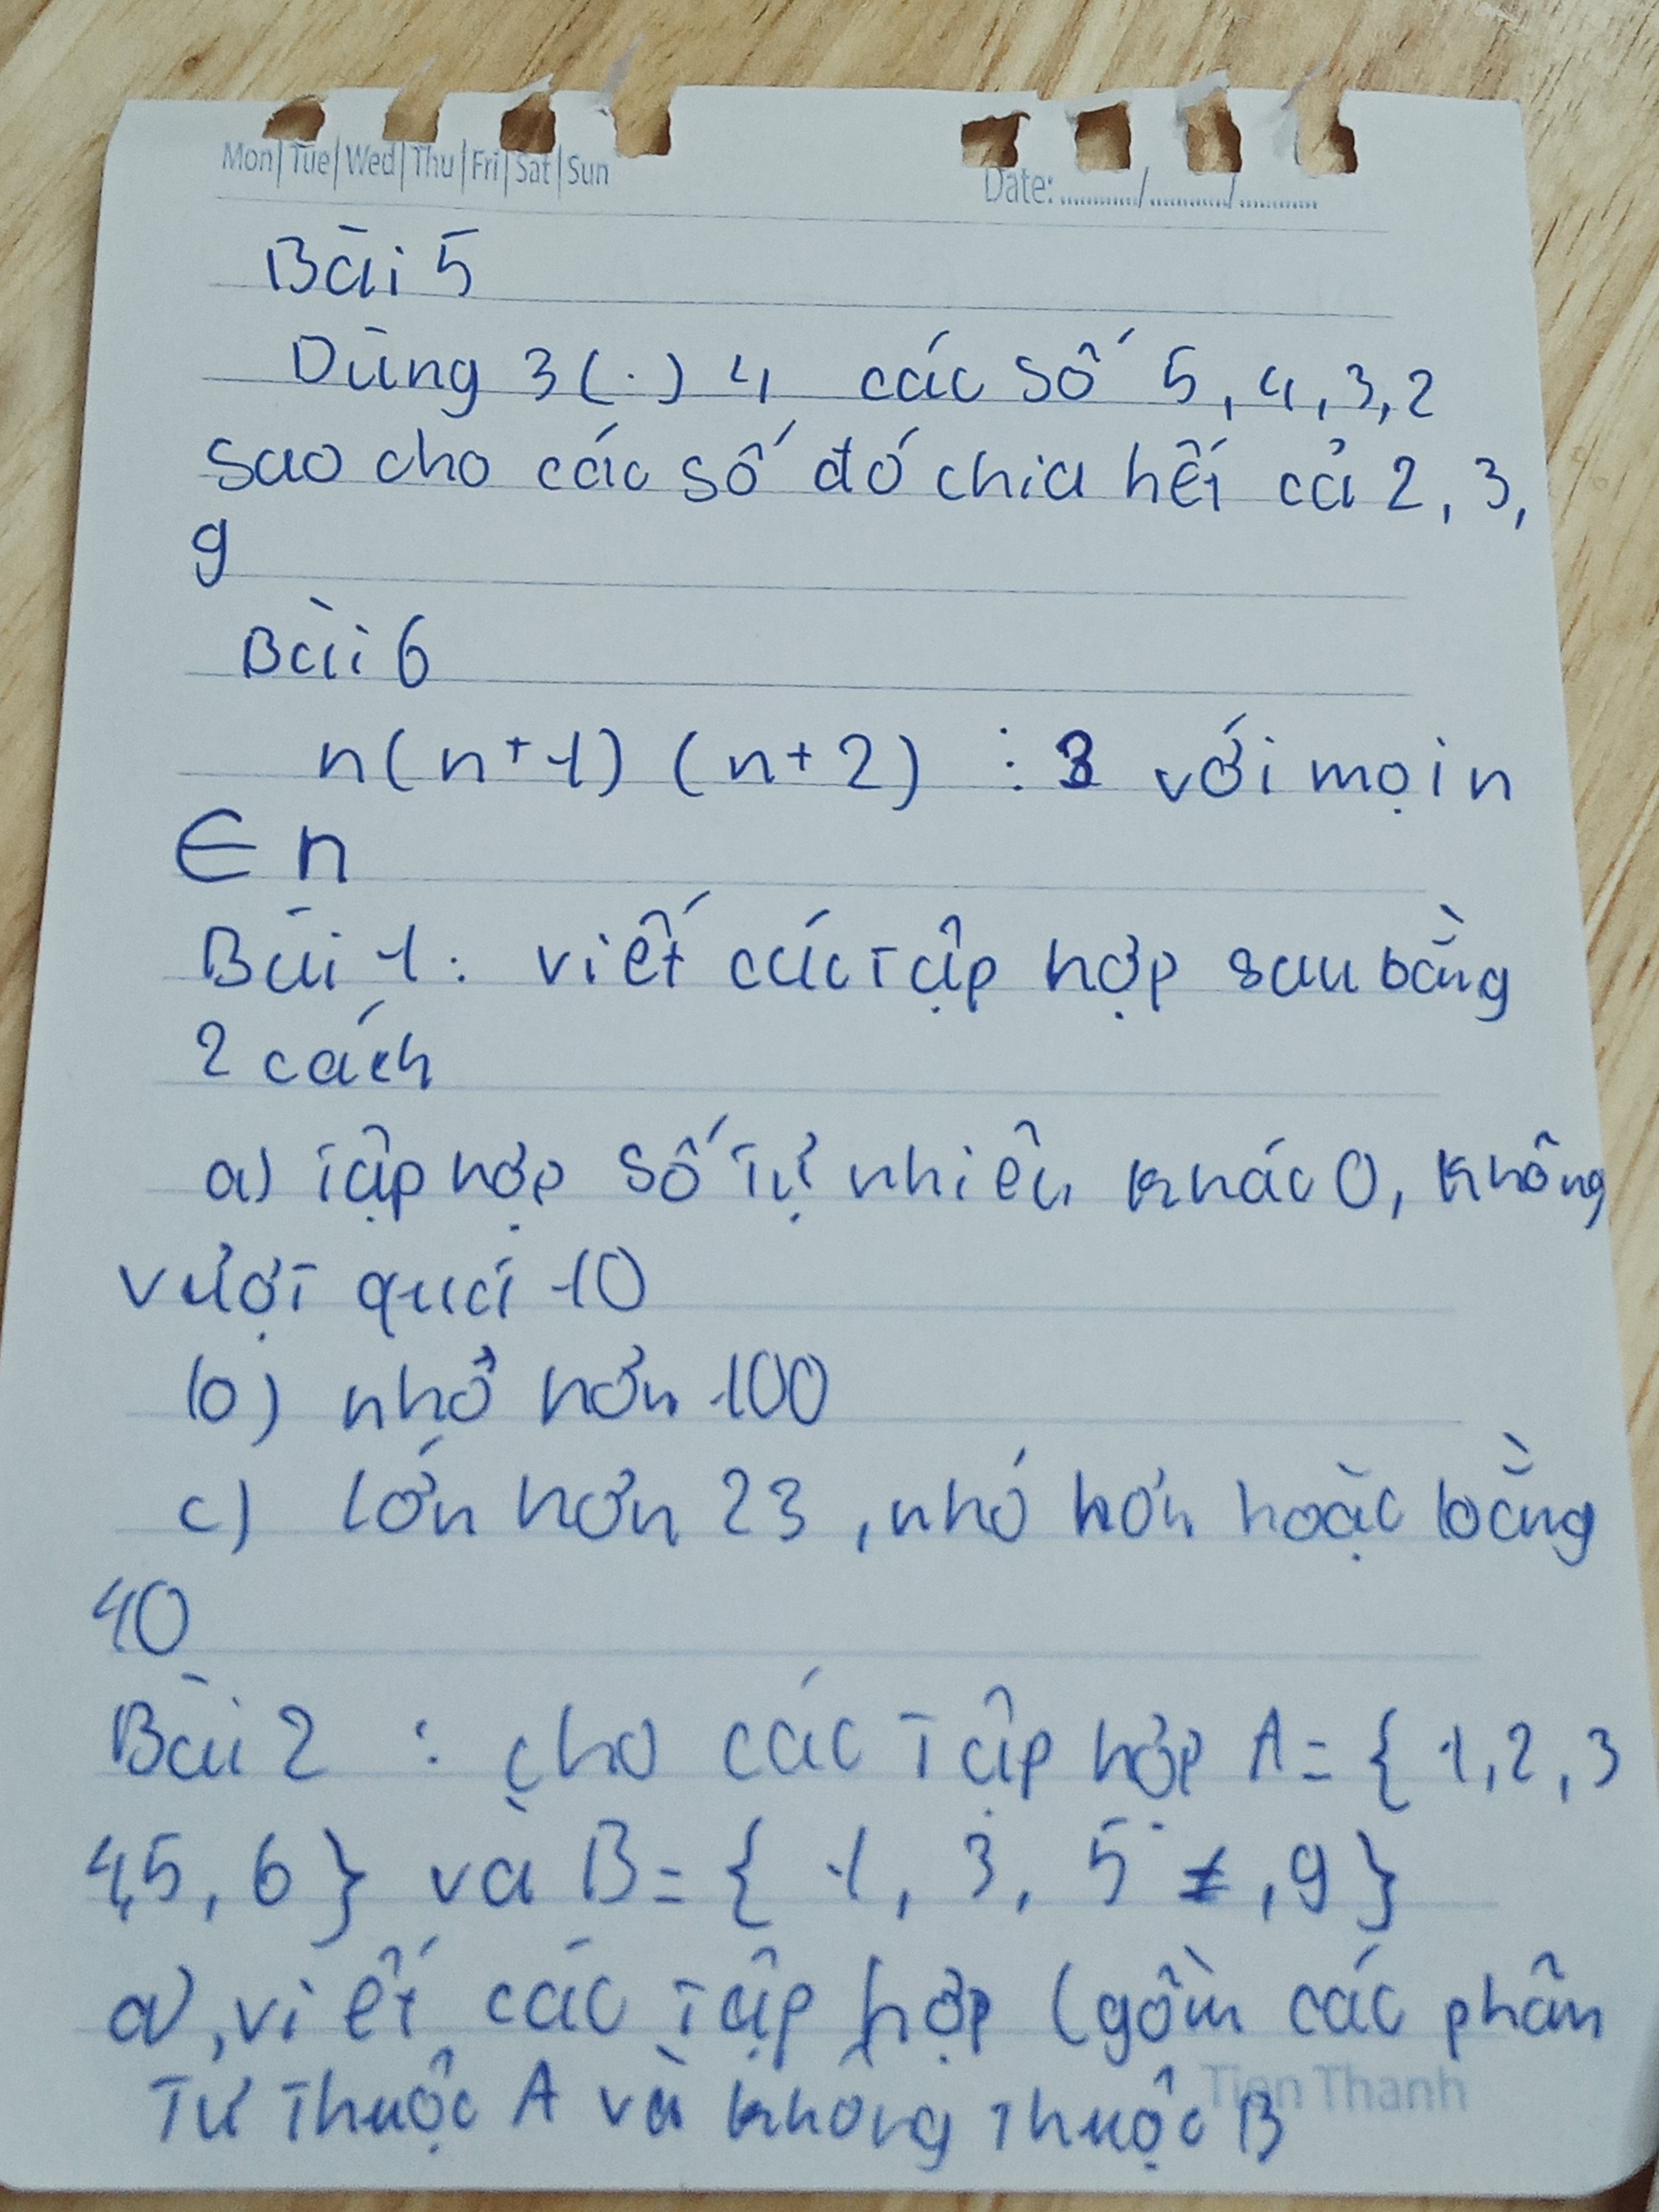 Mon|Tue|Wed|Thu|Fri|Sat|Sun Date: ........../........../..........
Bài 5
Dùng 3 (.) 4 các số 5, 4, 3, 2
sao cho các số đó chia hết cả 2, 3,
9
Bài 6
n(n+1) (n+2) ⋮ 3 với mọi n
∈ n
Bài 1: viết các tập hợp sau bằng
2 cách
a) Tập hợp số tự nhiên khác 0, không
vượt quá 10
b) nhỏ hơn 100
c) lớn hơn 23, nhỏ hơn hoặc bằng
40
Bài 2 : cho các Tập hợp A = { 1, 2, 3
4, 5, 6 } và B = { 1, 3, 5 , 9 }
a), viết các tập hợp C gồm các phần
Tử Thuộc A và không thuộc B
Tien Thanh